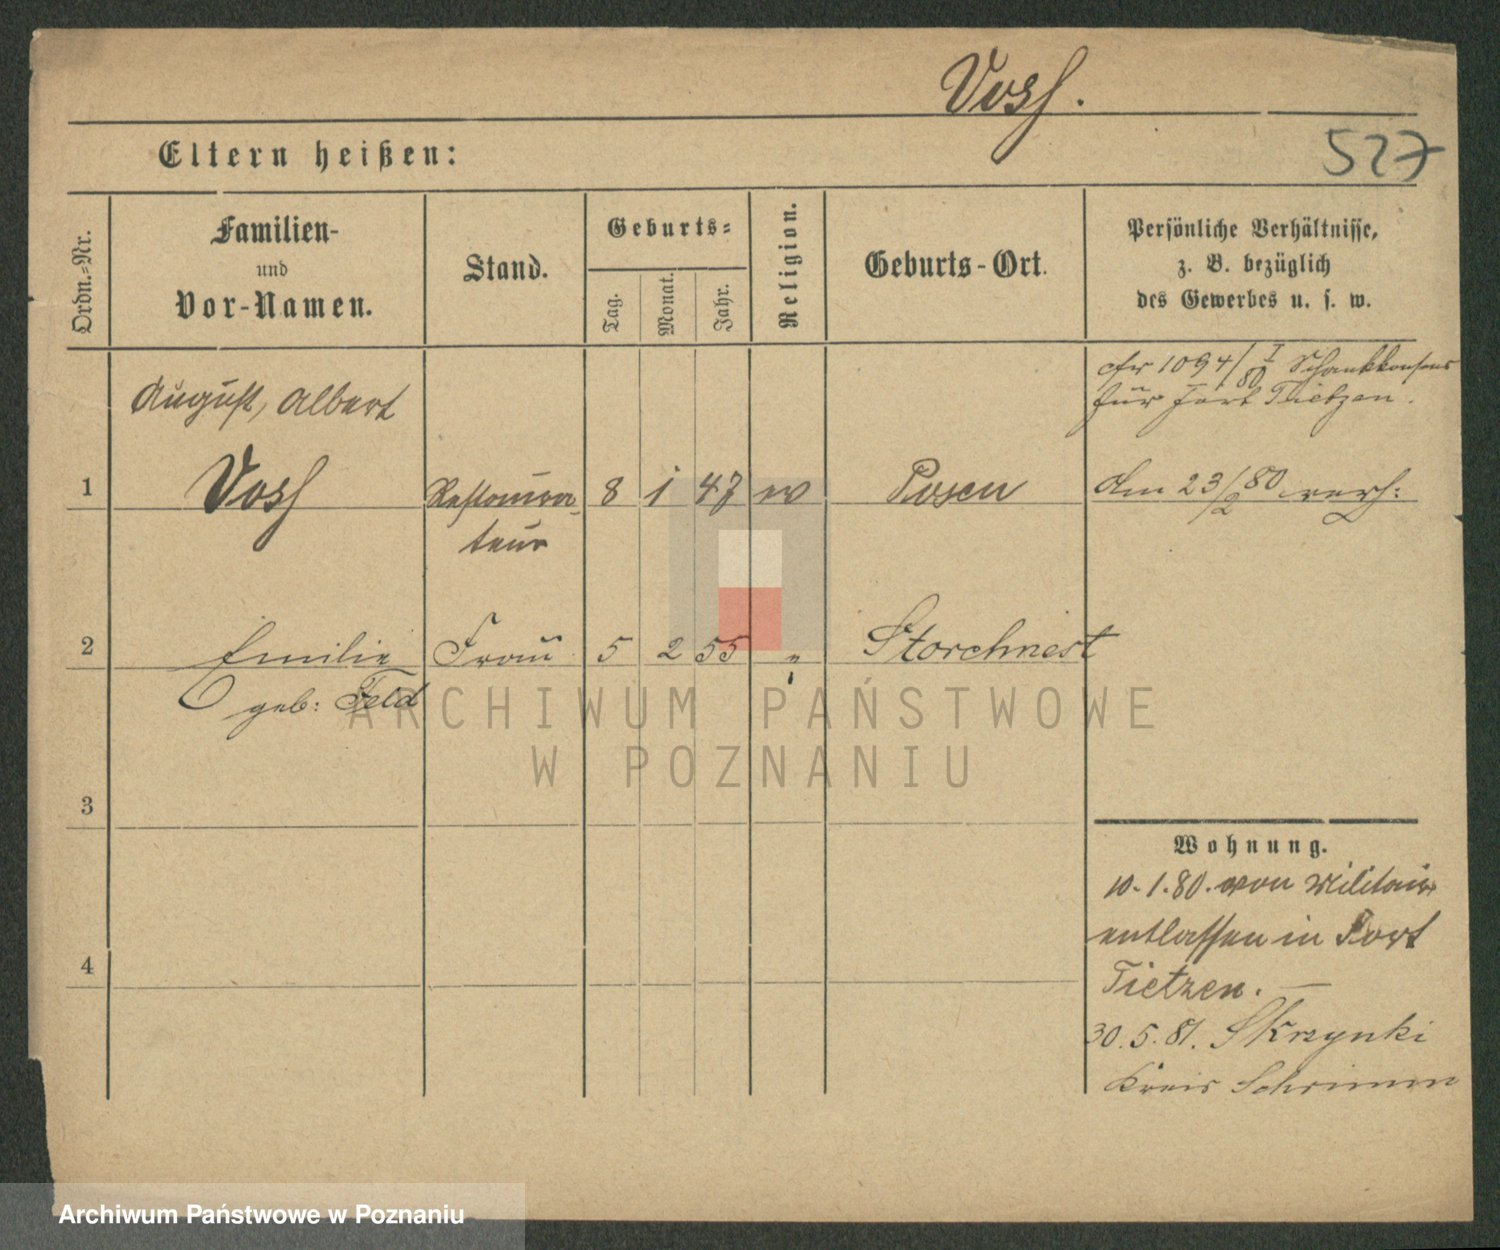 Vosz.
527
Eltern heißen:
Ordn.=Nr.
Familien-
und
Vor-Namen.
Stand.
Geburts=
Tag.
Monat.
Jahr.
Religion.
Geburts-Ort.
Persönliche Verhältnisse,
z. B. bezüglich
des Gewerbes u. s. w.
cfr 1094/80 I Schankkonsens
für Fort Tietzen.
August, Albert
1 Vosz Restaura- 8 1 47 ev Posen Am 23/2 80 verh:
teur
2 Emilie Frau 5 2 55 " Storchnest
geb: Feld
ARCHIWUM PAŃSTWOWE
W POZNANIU
3
Wohnung.
10.1.80. von Militair
entlassen in Fort
4
Tietzen. —
30.5.81. Skrzynki
Kreis Schrimm
Archiwum Państwowe w Poznaniu